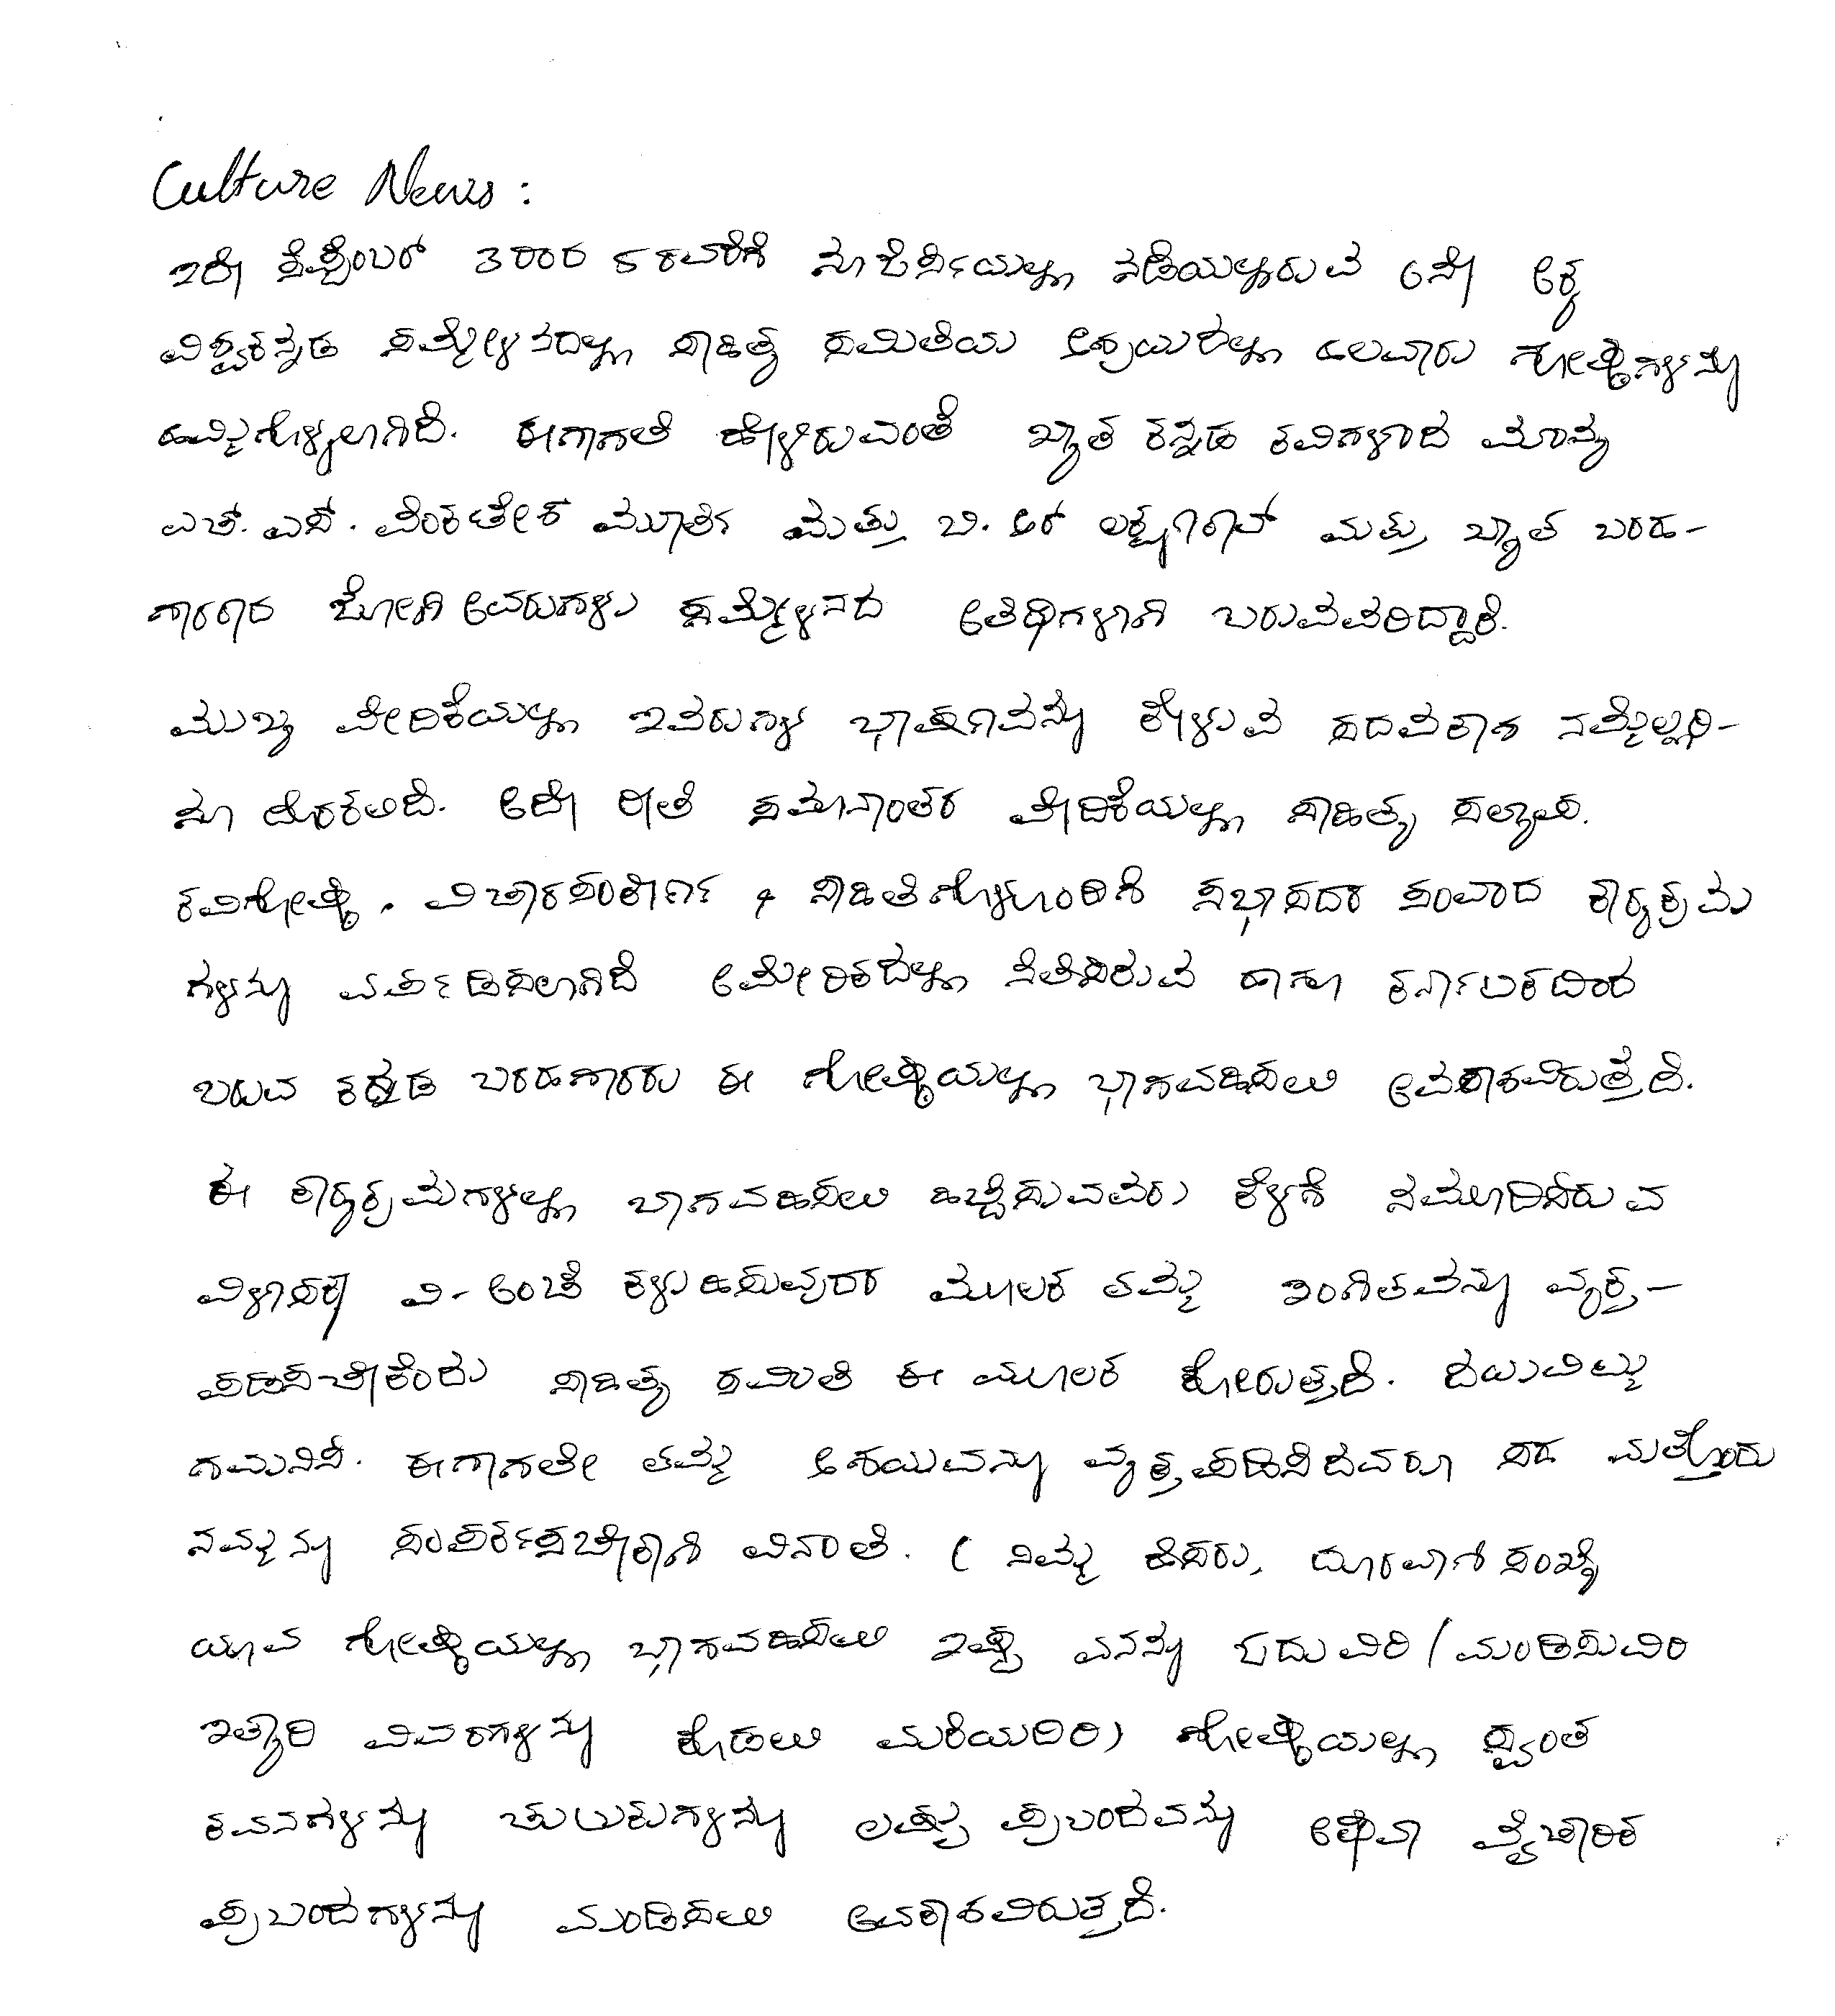 Culture News :
ಇದೇ ಸೆಪ್ಟೆಂಬರ್ 3ರಿಂದ 5ರವರೆಗೆ ನ್ಯೂಜೆರ್ಸಿಯಲ್ಲಿ ನಡೆಯಲ್ಲಿರುವ 6ನೇ ಅಕ್ಕ
ವಿಶ್ವಕನ್ನಡ ಸಮ್ಮೇಳನದಲ್ಲಿ ಸಾಹಿತ್ಯ ಸಮಿತಿಯ ಆಶ್ರಯದಲ್ಲಿ ಹಲವಾರು ಗೋಷ್ಠಿಗಳನ್ನು
ಹಮ್ಮಿಗೊಳ್ಳಲಾಗಿದೆ. ಈಗಾಗಲೆ ಹೇಳಿರುವಂತೆ ಖ್ಯಾತ ಕನ್ನಡ ಕವಿಗಳಾದ ಮಾನ್ಯ
ಎಚ್. ಎಸ್. ವೆಂಕಟೇಶ ಮೂರ್ತಿ ಮತ್ತು ಬಿ. ಆರ್ ಲಕ್ಷ್ಮಣರಾವ್ ಮತ್ತು ಖ್ಯಾತ ಬರಹ-
ಗಾರರಾದ ಜೋಗಿ ಅವರುಗಳು ಸಮ್ಮೇಳನದ ಅತಿಥಿಗಳಾಗಿ ಬರುವವರಿದ್ದಾರೆ.
ಮುಖ್ಯ ವೇದಿಕೆಯಲ್ಲಿ ಇವರುಗಳ ಭಾಷಣವನ್ನು ಕೇಳುವ ಸದವಕಾಶ ನಮ್ಮೆಲ್ಲರಿ-
ಗೂ ದೊರಕಲಿದೆ. ಅದೇ ರೀತಿ ಸಮಾನಾಂತರ ವೇದಿಕೆಯಲ್ಲಿ ಸಾಹಿತ್ಯ ಸಲ್ಲಾಪ.
ಕವಿಗೋಷ್ಠಿ . ವಿಚಾರಸಂಕೀರ್ಣ , ಸಾಹಿತಿಗಳೊಂದಿಗೆ ಸಭಾಸದರ ಸಂವಾದ ಕಾರ್ಯಕ್ರಮ
ಗಳನ್ನು ಏರ್ಪಡಿಸಲಾಗಿದೆ ಅಮೇರಿಕದಲ್ಲಿ ನೆಲೆಸಿರುವ ಹಾಗೂ ಕರ್ನಾಟಕದಿಂದ
ಬರುವ ಕನ್ನಡ ಬರಹಗಾರರು ಈ ಗೋಷ್ಠಿಯಲ್ಲಿ ಭಾಗವಹಿಸಲು ಅವಕಾಶವಿರುತ್ತದೆ.
ಈ ಕಾರ್ಯಕ್ರಮಗಳಲ್ಲಿ ಬಾಗವಹಿಸಲು ಇಚ್ಚಿಸುವವರು ಕೆಳಗೆ ನಮೂದಿಸಿರುವ
ವಿಳಾಸಕ್ಕೆ ವಿ-ಅಂಚೆ ಕಳುಹಿಸುವುದರ ಮೂಲಕ ತಮ್ಮ ಇಂಗಿತವನ್ನು ವ್ಯಕ್ತ-
ಪಡಿಸಬೇಕೆಂದು ಸಾಹಿತ್ಯ ಸಮಿತಿ ಈ ಮೂಲಕ ಕೋರುತ್ತದೆ. ದಯವಿಟ್ಟು
ಗಮನಿಸಿ. ಈಗಾಗಲೇ ತಮ್ಮ ಆಶಯವನ್ನು ವ್ಯಕ್ತಪಡಿಸಿದವರೂ ಸಹ ಮತ್ತೊಂದು
ನಮ್ಮನ್ನು ಸಂಪರ್ಕಿಸಬೇಕಾಗಿ ವಿನಂತಿ. ( ನಿಮ್ಮ ಹೆಸರು, ದೂರವಾಣಿ ಸಂಖ್ಯೆ
ಯಾವ ಗೋಷ್ಠಿಯಲ್ಲಿ ಭಾಗವಹಿಸಲು ಇಷ್ಟ ಏನನ್ನು ಓದುವಿರಿ / ಮಂಡಿಸುವಿರಿ
ಇತ್ಯಾದಿ ವಿವರಗಳನ್ನು ಕೊಡಲು ಮರೆಯದಿರಿ) ಗೋಷ್ಠಿಯಲ್ಲಿ ಸ್ವಂತ
ಕವನಗಳನ್ನು ಚುಟುಕುಗಳನ್ನು ಲಘು ಪ್ರಬಂದವನ್ನು ಅಥವಾ ವೈಚಾರಿಕ
ಪ್ರಬಂದಗಳನ್ನು ಮಂಡಿಸಲು ಅವಕಾಶವಿರುತ್ತದೆ.